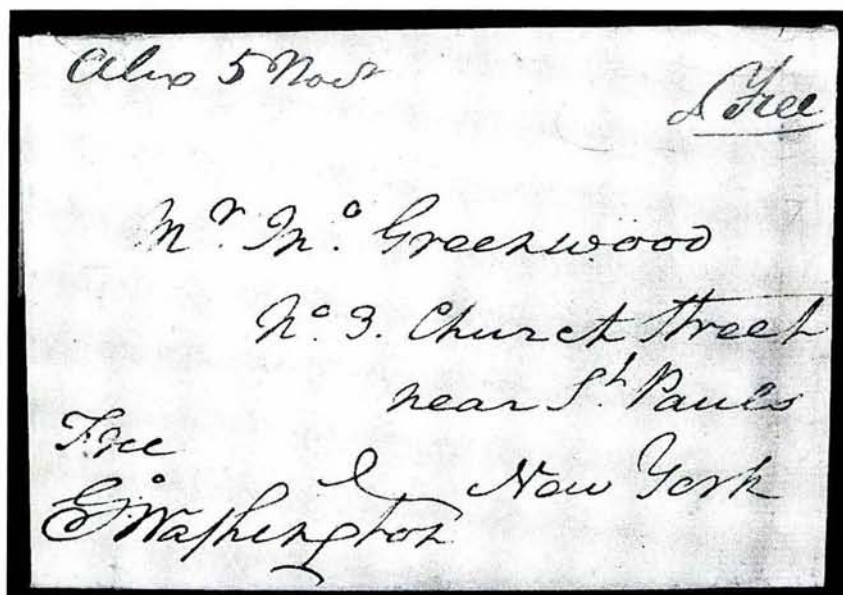 Alex 5 Nov
Free
Mr. Jno. Greenwood
No. 3. Church Street
near St. Pauls
New York
Free
Go Washington